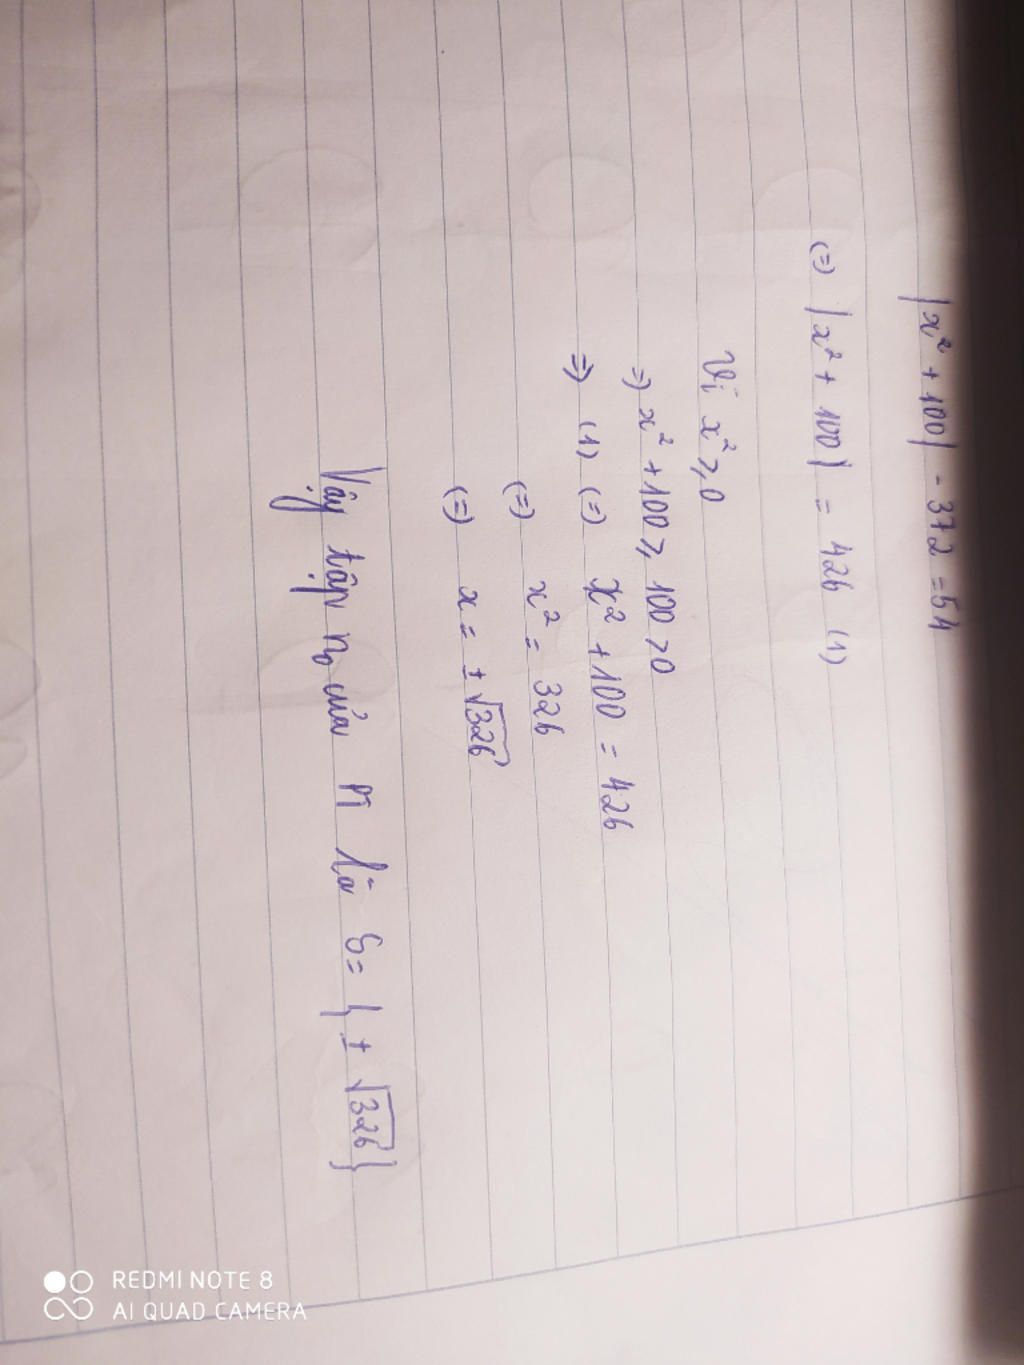 |x² + 100| - 372 = 54
(=) |x² + 100| = 426 (1)
Vì x² ≥ 0
=) x² + 100 ≥ 100 > 0
=) (1) (=) x² + 100 = 426
(=) x² = 326
(=) x = ± √326
Vậy tập n₀ của pt là S = { ± √326 }
REDMI NOTE 8
AI QUAD CAMERA